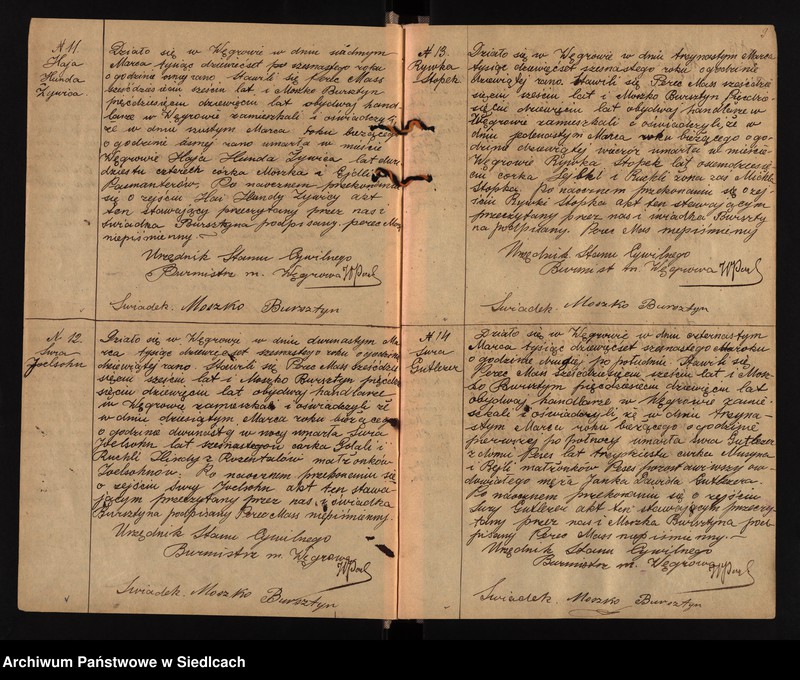 N 11.
Haja
Hinda
Zywica
Działo się w Węgrowie w dniu siódmym
Marca tysiąc dziewięćset szesnastego roku
o godzinie rano. Stawili się Perec Mass
sześćdziesiąt sześciu lat i Moszko Bursztyn
pięćdziesięciu dziewięciu lat obydwaj hand
larze w Węgrowie zamieszkali i oświadczyli,
że w dniu szóstym Marca roku bieżącego
o godzinie ósmej rano umarła w mieście
Węgrowie Haja Hinda Zywica lat dwu
dziestu czterech córka Moszka i
Po naocznem przekonaniu
się o zejściu Hai Hindy Zywicy akt
ten stawającym przeczytany przez nas i
świadka Bursztyna podpisany. Perec Mass
niepiśmienny. —
Urzędnik Stanu Cywilnego
Burmistrz m. Węgrowa
Świadek. Moszko Bursztyn
N 12.
Sura
Joelsohn
Działo się w Węgrowie w dniu dwunastym Ma
rca tysiąc dziewięćset szesnastego roku o godzinie
dziewiątej rano. Stawili się Perec Mass sześćdzie
sięciu sześciu lat i Moszko Bursztyn pięćdzie
sięciu dziewięciu lat obydwaj handlarze
w Węgrowie zamieszkali i oświadczyli że
w dniu dziesiątym Marca roku bieżącego
o godzinie dwunastej w nocy umarła Sura
Joelsohn lat córka Gdali i
Ruchli Hindy z Rozentalów małżonków
Joelsohnów. Po naocznem przekonaniu się
o zejściu Sury Joelsohn akt ten stawa
jącym przeczytany przez nas i świadka
Bursztyna podpisany Perec Mass niepiśmienny. —
Urzędnik Stanu Cywilnego
Burmistrz m. Węgrowa
Świadek. Moszko Bursztyn
9
N 13.
Rywka
Stopek
Działo się w Węgrowie w dniu trzynastym Marca
tysiąc dziewięćset szesnastego roku o godzinie
dziewiątej rano. Stawili się Perec Mass sześćdzie
sięciu sześciu lat i Moszko Bursztyn pięćdzie
sięciu dziewięciu lat obydwaj handlarze w
Węgrowie zamieszkali i oświadczyli, że w
dniu jedenastym Marca roku bieżącego o go
dzinie dziewiątej wieczór umarła w mieście
Węgrowie Rywka Stopek lat osiemdziesię
ciu córka i Ruchli żona zaś
Stopka. Po naocznem przekonaniu się o zej
ściu Rywki Stopka akt ten stawającym
przeczytany przez nas i świadka Burszty
na podpisany. Perec Mass niepiśmienny
Urzędnik Stanu Cywilnego
Burmist m. Węgrowa
Świadek. Moszko Bursztyn
N 14
Sura
Gutlezer
Działo się w Węgrowie w dniu czternastym
Marca tysiąc dziewięćset szesnastego roku
o godzinie drugiej po południu. Stawili się
Perec Mass sześćdziesięciu sześciu lat i Mosz
ko Bursztyn pięćdziesięciu dziewięciu lat
obydwaj handlarze w Węgrowie zamie
szkali i oświadczyli że w dniu trzyna
stym Marca roku bieżącego o godzinie
pierwszej po północy umarła Sura Gutlezer
z domu Peres lat trzydziestu córka
i małżonków Peres pozostawiwszy ow
dowiałego męża Janka Gutlezera.
Po naocznem przekonaniu się o zejściu
Sury Gutlezer akt ten stawającym przeczy
tany przez nas i Moszka Bursztyna pod
pisany Perec Mass niepiśmienny. —
Urzędnik Stanu Cywilnego
Burmistrz m. Węgrowa
Świadek. Moszko Bursztyn
Archiwum Państwowe w Siedlcach